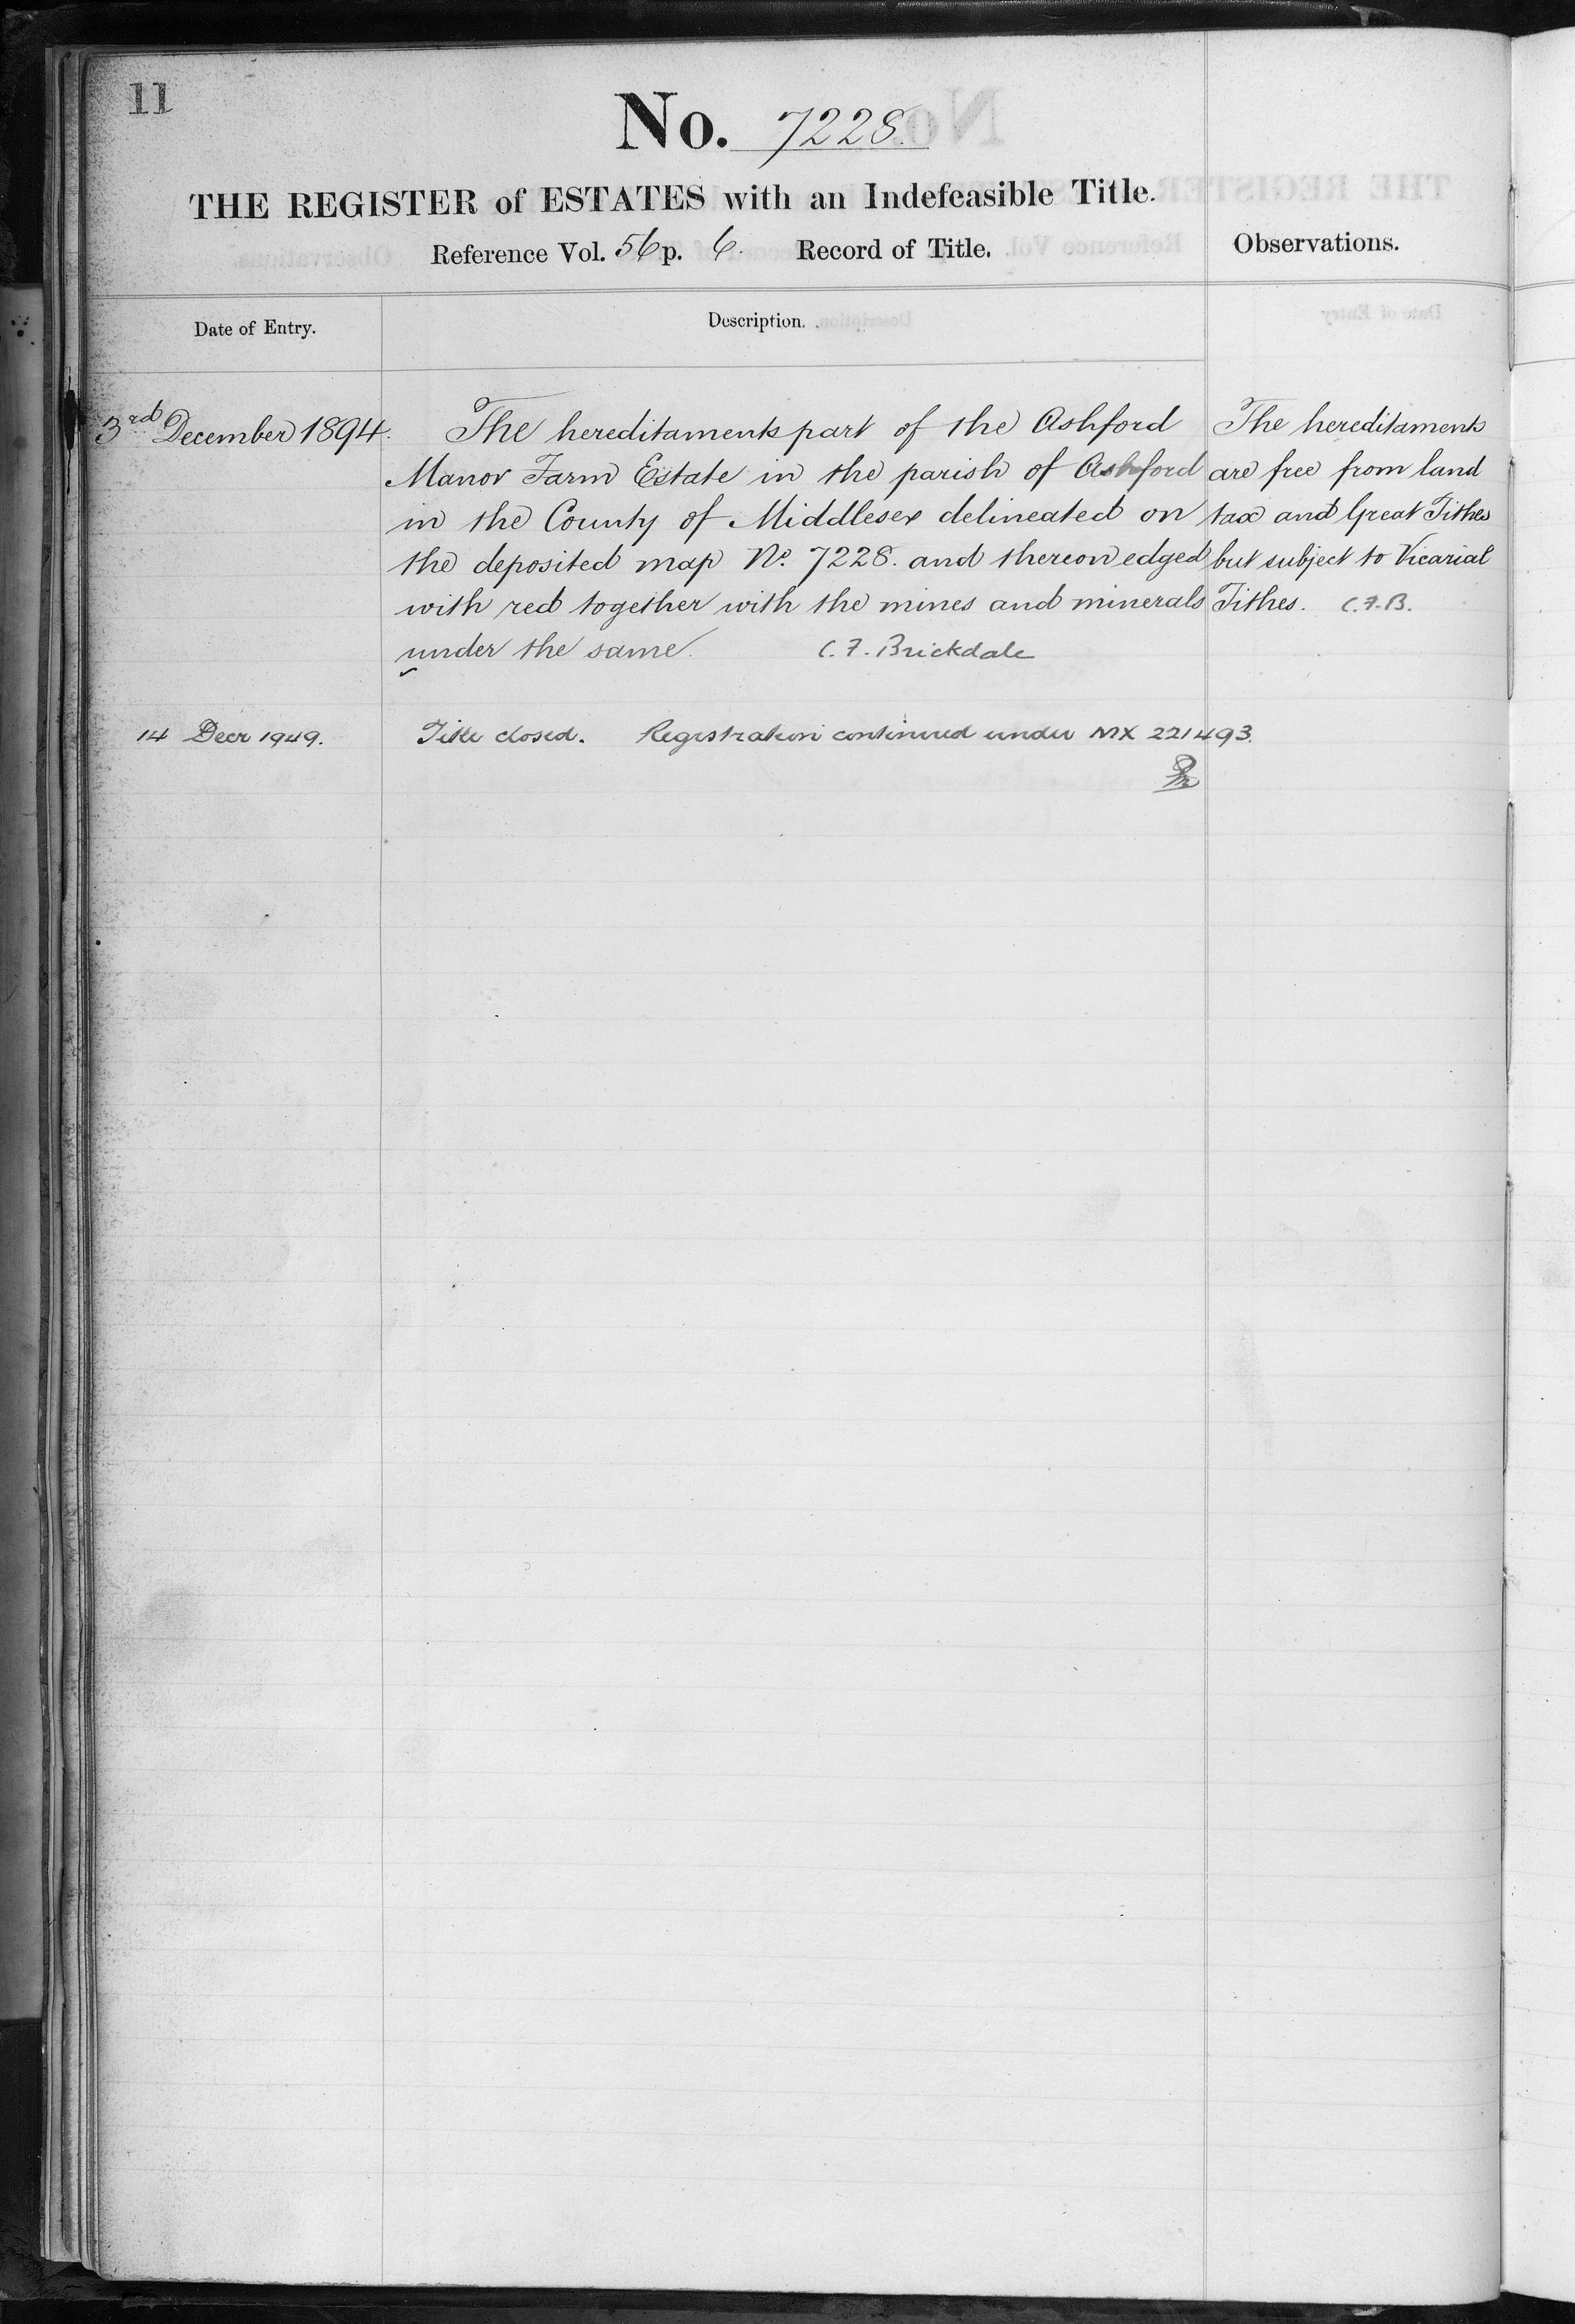 11
No. 7228.
THE REGISTER of ESTATES with an Indefeasible Title.
Reference Vol. 56 p. 6. Record of Title.
Observations.
Date of Entry.
Description.
3rd December 1894.
The hereditaments part of the Ashford
Manor Farm Estate in the parish of Ashford
in the County of Middlesex delineated on
the deposited map No. 7228. and thereon edged
with red together with the mines and minerals
under the same. C. F. Brickdale
The hereditaments
are free from land
tax and Great Tithes
but subject to Vicarial
Tithes. C.F.B.
14 Decr 1949.
Title closed. Registration continued under MX 221493.